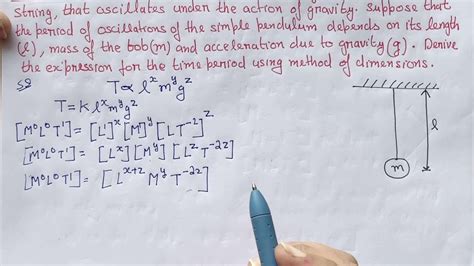 String, that oscillates under the action of gravity. suppose that
the period of oscillations of the simple pendulum depends on its length
(l), mass of the bob(m) and acceleration due to gravity(g). Derive
the expression for the time period using method of dimensions.
Sol
T∝ l^x m^y g^z
T=K l^x m^y g^z
[M⁰L⁰T¹]= [L¹]^x [M]^y [LT⁻²]^z
[M⁰L⁰T¹]= [L^x][M^y][L^z T^-2z]
[M⁰L⁰T¹]= [L^x+z M^y T^-2z]
l
m